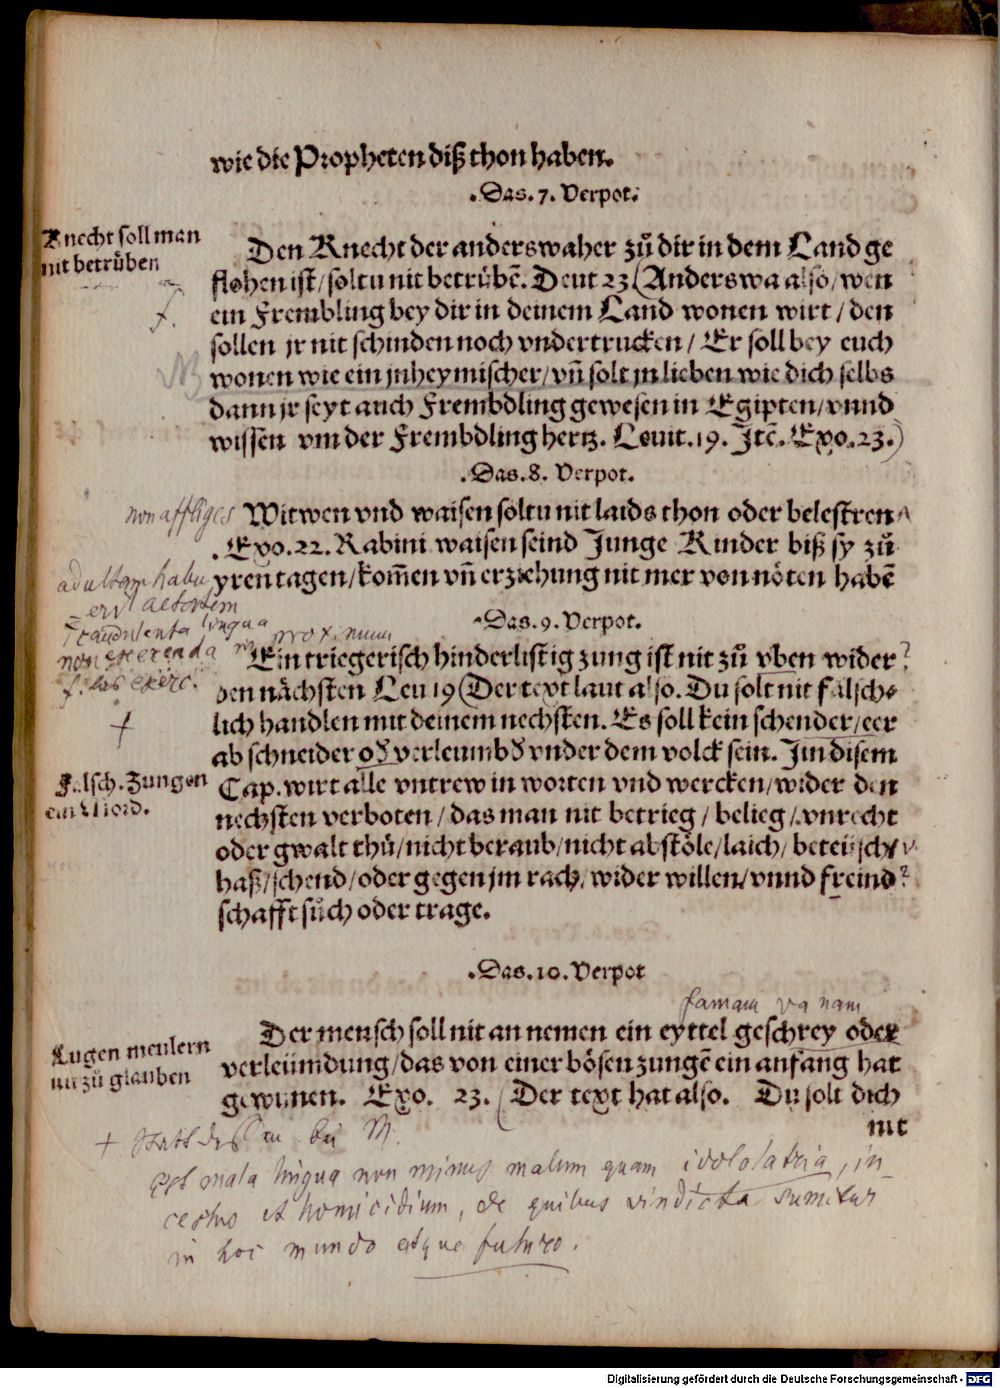 wie die Propheten diß thon haben.
.Das.7.Verpot.
Knecht soll man
nit betrüben
f.
M
Den Knecht der anderswaher zů dir in dem Land ge
flohen ist/soltu nit betrübē. Deut 23 (Anderswa also/wen
ein Frembling bey dir in deinem Land wonen wirt/den
sollen jr nit schinden noch vndertrucken/Er soll bey euch
wonen wie ein jnheymischer/vñ solt jn lieben wie dich selbs
dann jr seyt auch Frembdling gewesen in Egipten/vnnd
wissen vm der Frembdling hertz. Leuit.19. Jtē. Exo.23.)
.Das.8.Verpot.
non affliges
Witwen vnd waisen soltu nit laids thon oder belestren
.Exo.22.Rabini waisen seind Junge Kinder biß sy zů
yren tagen/kom̄en vñ erziehung nit mer von nöten habē
adultam habu
erit aetatem
.Das.9.Verpot.
Fraudulenta lingua
non exercenda in proximum
f. las exerc.
+
Ein triegerisch hinderlistig zung ist nit zů vben wider
den nächsten Leu 19 (Der text laut also. Du solt nit fälsch⸗
lich handlen mit deinem nechsten. Es soll kein schender/eer
ab schneider oď verleumbď vnder dem volck sein. Jm disem
Cap.wirt alle vntrew in worten vnd wercken/wider den
nechsten verboten/das man nit betrieg/belieg/vnrecht
oder gwalt thů/nicht beraub/nicht abstöle/laich/beteüsch/
haß/schend/oder gegen jm rach/wider willen/vnnd freind
schafft sůch oder trage.
Falsch.Zungen
ein Mord.
.Das.10.Verpot
famam vanam
Lugen meulern
nit zů glauben
Der mensch soll nit an nemen ein eyttel geschrey oder
verleümdung/das von einer bösen zungē ein anfang hat
gewunen. Exo. 23. (Der text hat also. Du solt dich
nit
+ bei M.
Est mala lingua non minus malum quam idololatria, in⸗
cestus et homicidium, de quibus vindicta sumitur
in hoc mundo atque futuro.
Digitalisierung gefördert durch die Deutsche Forschungsgemeinschaft - DFG